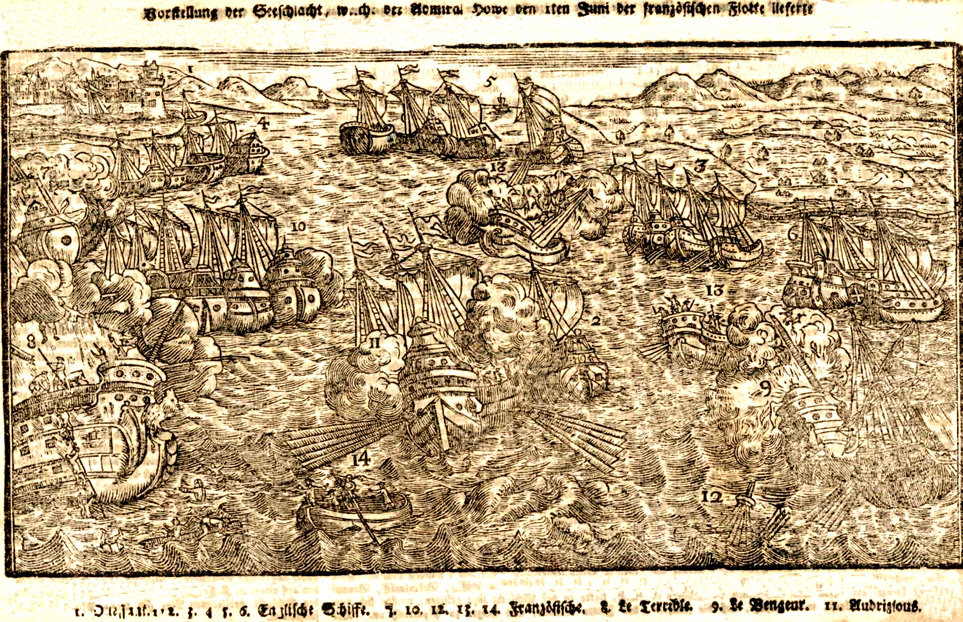 Vorstellung der Seeschlacht, der Admiral Howe den 1ten Juni der französischen Flotte lieferte
1
5
4
13
3
7
10
6
13
2
11
8
9
14
12
1. 2. 3. 4 5. 6. Englische Schiffe. 7. 10. 12. 13. 14. Französische. 8. Le Terrible. 9. Le Vengeur. 11. Audrizious.